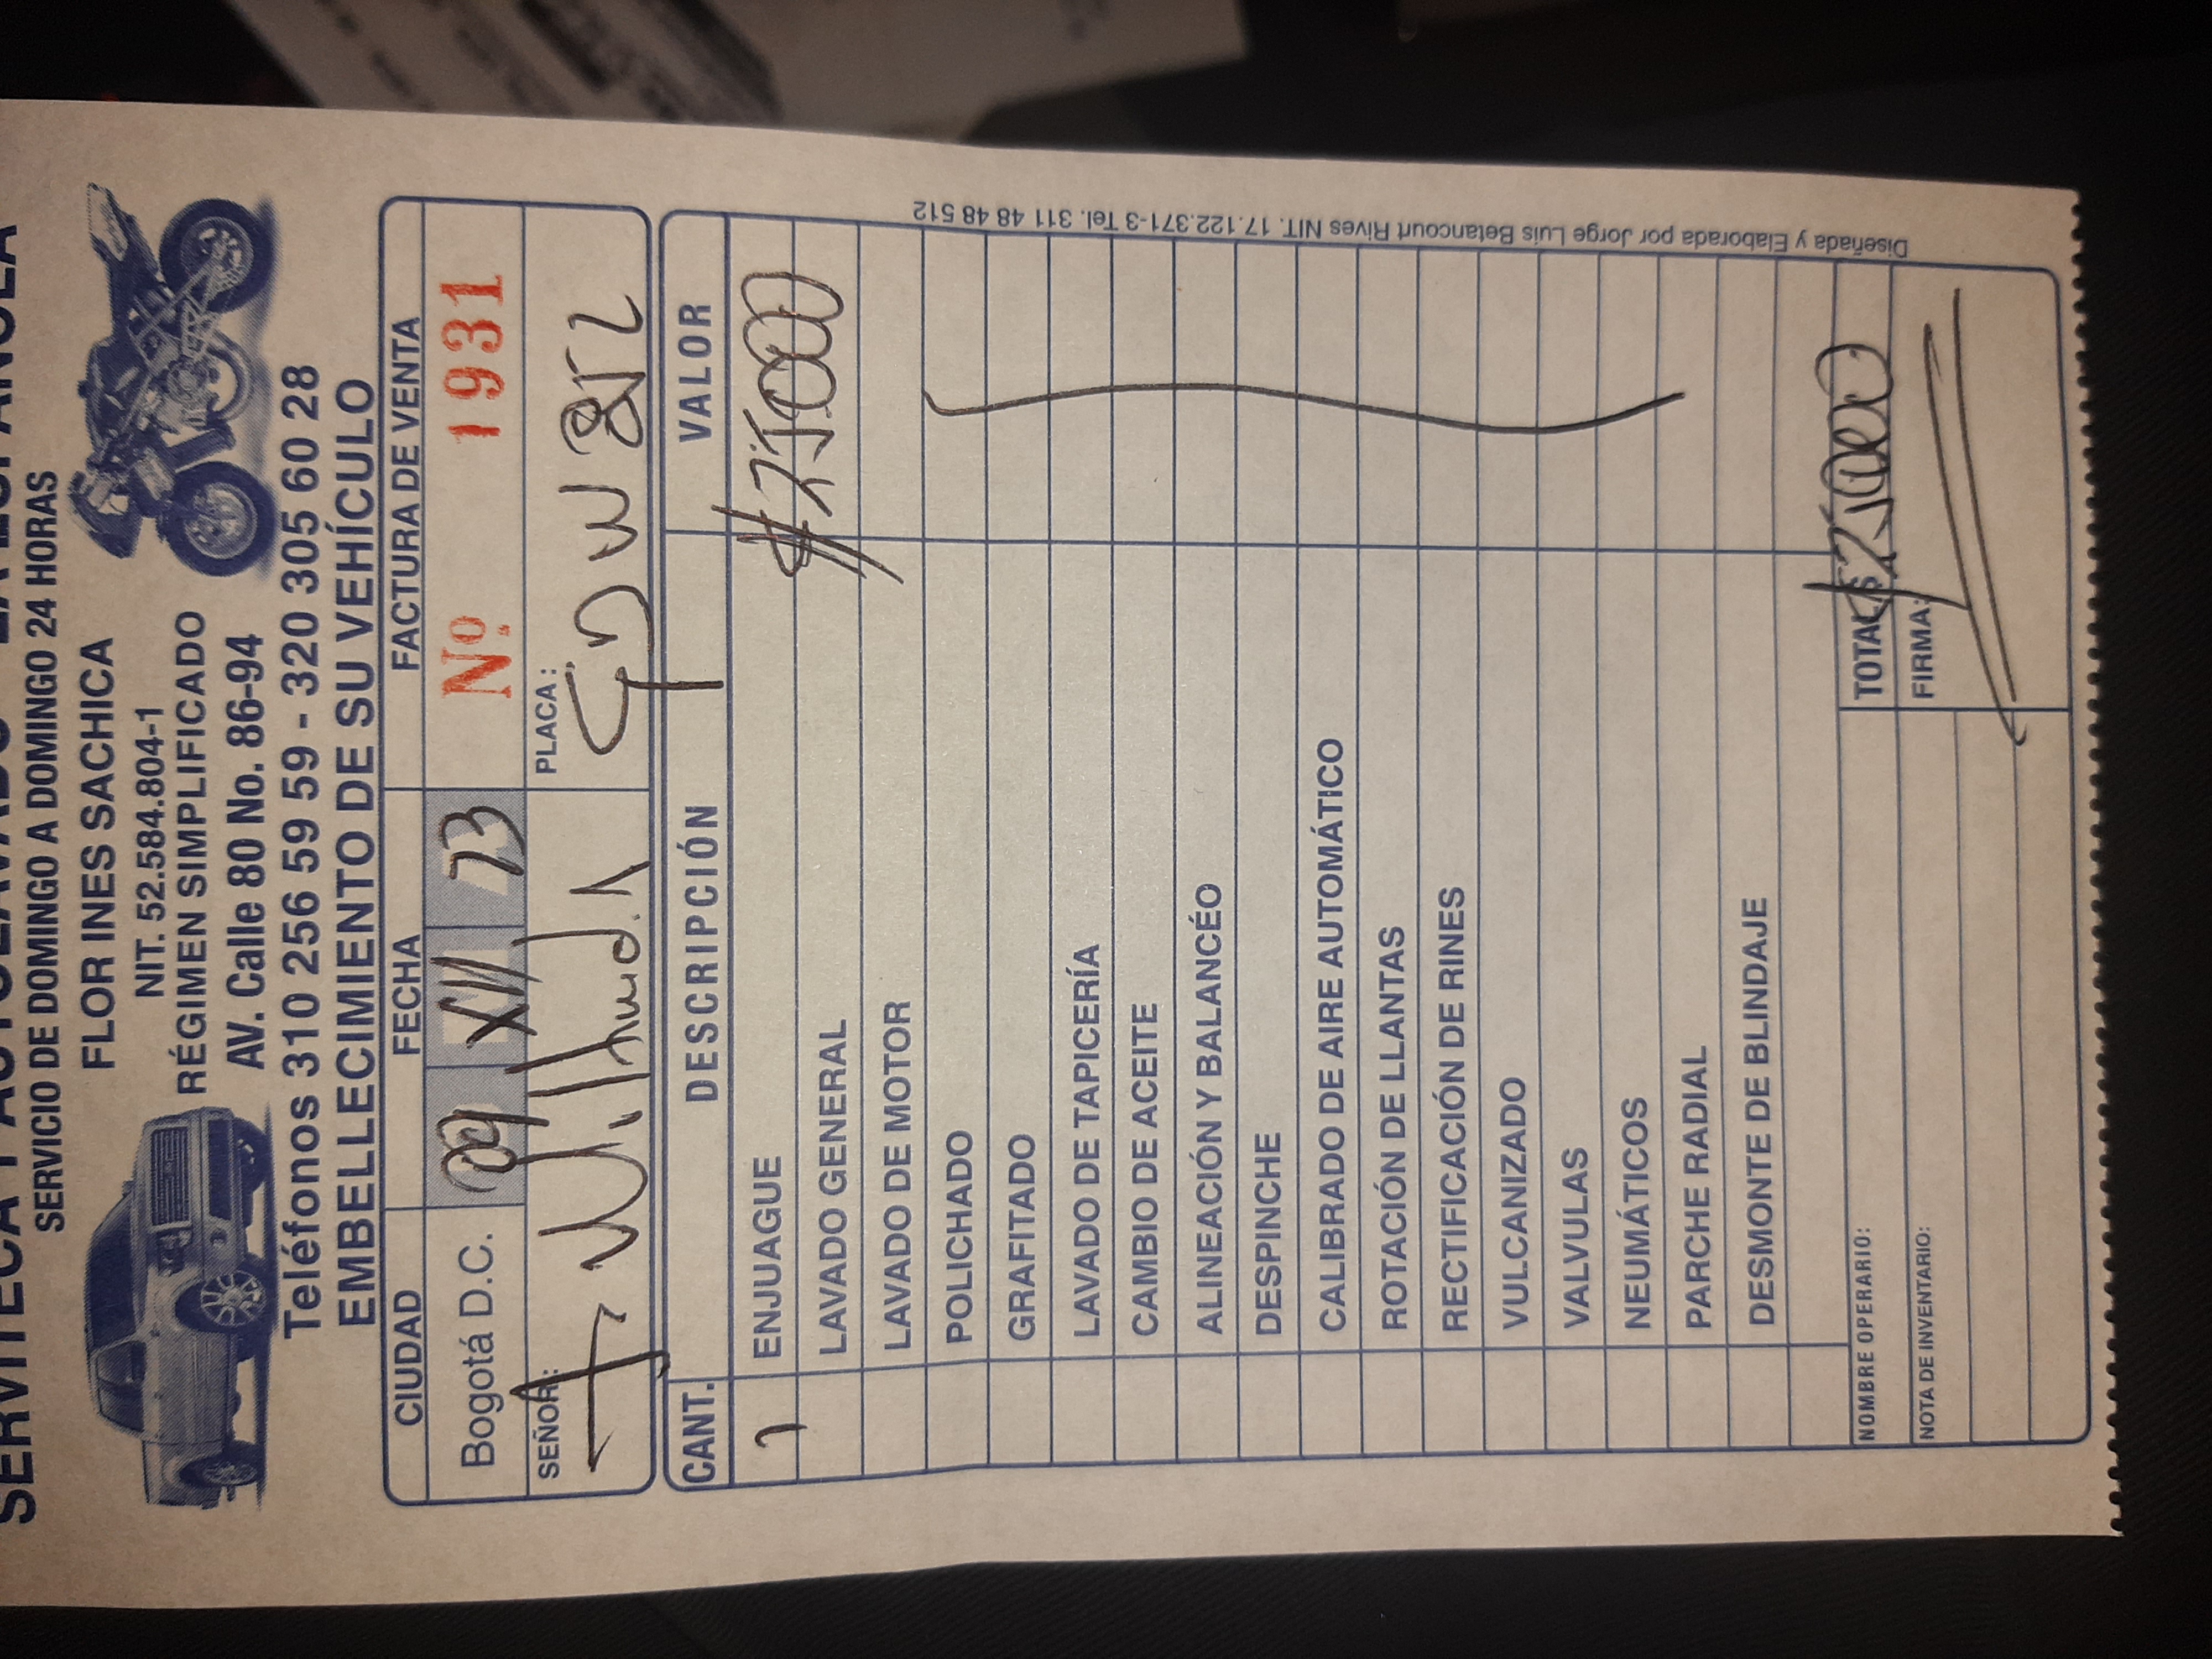 SERVICIO DE DOMINGO A DOMINGO 24 HORAS
FLOR INES SACHICA
NIT. 52.584.804-1
RÉGIMEN SIMPLIFICADO
AV. Calle 80 No. 86-94
Teléfonos 310 256 59 59 - 320 305 60 28
EMBELLECIMIENTO DE SU VEHÍCULO
CIUDAD FECHA FACTURA DE VENTA
Bogotá D.C. 09 XII 23 No. 1931
SEÑOR: PLACA: 852
CANT. DESCRIPCIÓN VALOR
1 ENJUAGUE $25000
LAVADO GENERAL
LAVADO DE MOTOR
POLICHADO
GRAFITADO
LAVADO DE TAPICERÍA
CAMBIO DE ACEITE
ALINEACIÓN Y BALANCÉO
DESPINCHE
CALIBRADO DE AIRE AUTOMÁTICO
ROTACIÓN DE LLANTAS
RECTIFICACIÓN DE RINES
VULCANIZADO
VALVULAS
NEUMÁTICOS
PARCHE RADIAL
DESMONTE DE BLINDAJE
NOMBRE OPERARIO: TOTAL $ 25000
NOTA DE INVENTARIO: FIRMA:
Diseñada y Elaborada por Jorge Luis Betancourt Rives NIT. 17.122.371-3 Tel. 311 48 48 512